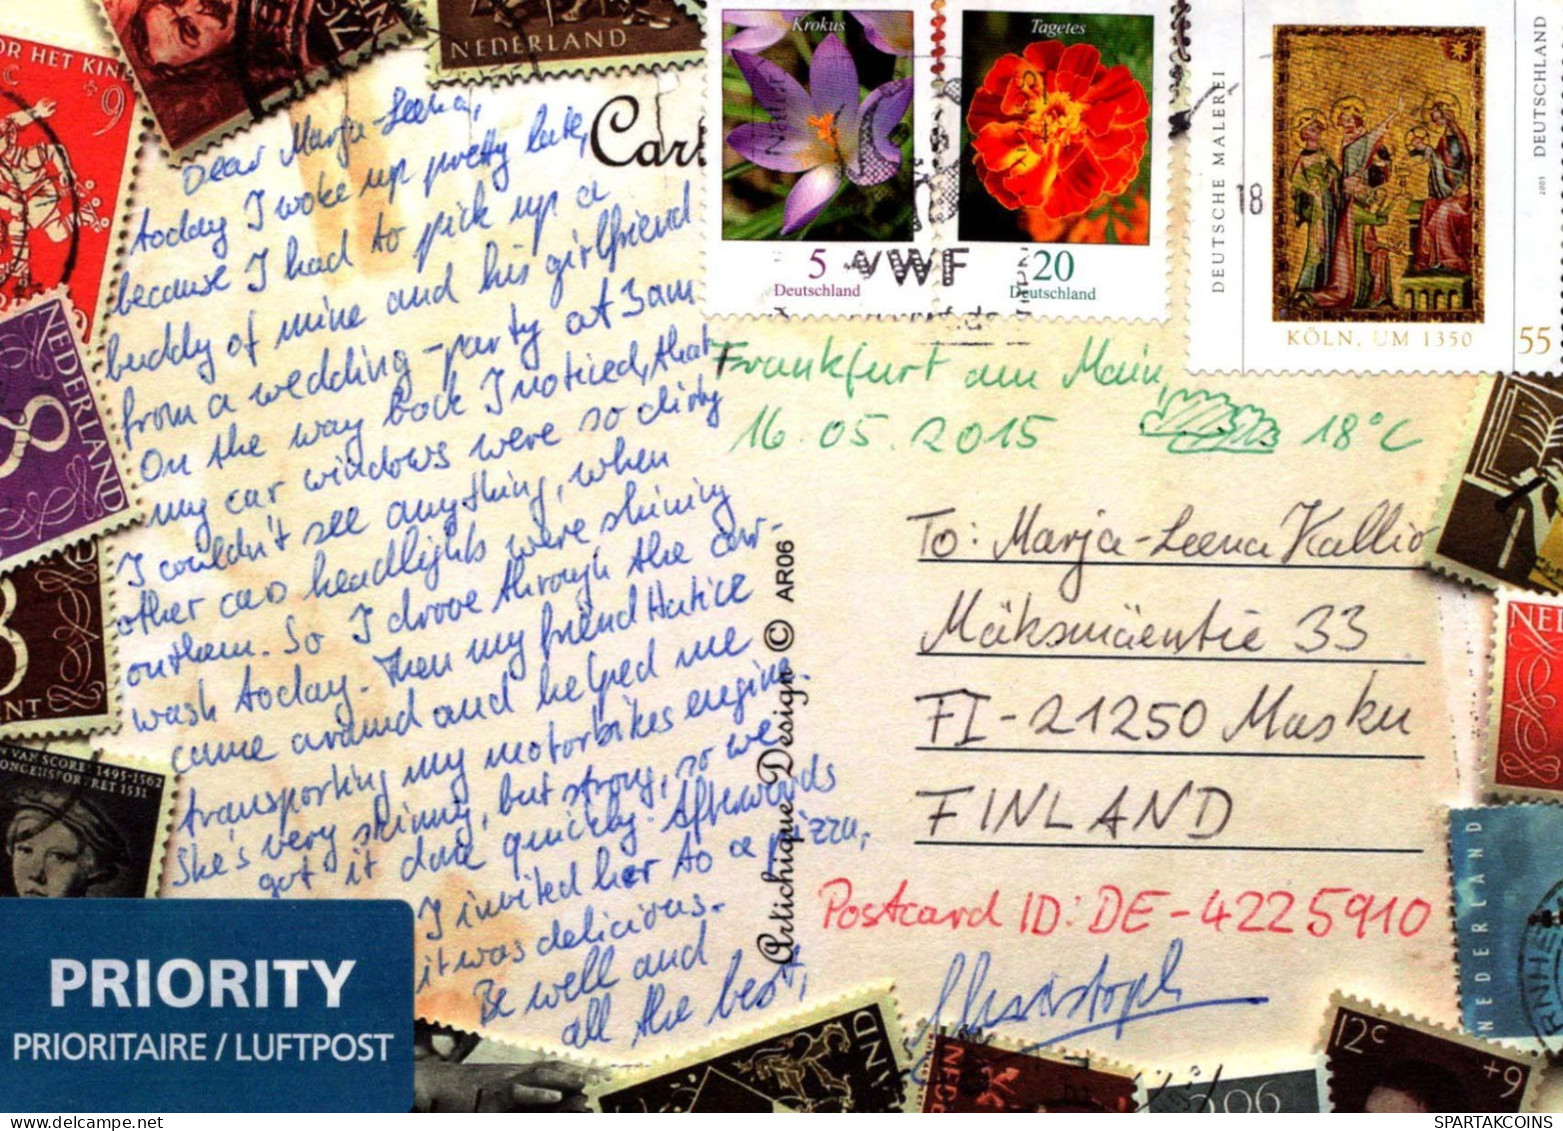 Dear Marja-Leena,
today I woke up pretty late,
because I had to pick up a
buddy of mine and his girlfriend
from a wedding-party at 3am.
On the way back I noticed, that
my car windows were so dirty
I couldn't see anything, when
other cars headlights were shining
on them. So I drove through the car-
wash today. Then my friend Hatice
came around and helped me
transporting my motorbikes engine.
She's very skinny, but strong, so we
got it done quickly. Afterwards
I invited her to a pizza,
it was delicious.
Be well and
all the best,
Christoph
Cart
Krokus
5
Deutschland
Tagetes
20
Deutschland
VWF
18
DEUTSCHE MALEREI
KÖLN, UM 1350
55
DEUTSCHLAND
Frankfurt am Main,
16.05.2015 18°C
To: Marja-Leena Kallio
Mäksmäentie 33
FI-21250 Masku
FINLAND
Postcard ID: DE-4225910
Artichique Design © AR06
PRIORITY
PRIORITAIRE / LUFTPOST
NEDERLAND
OR HET KIN
c +6
NEDERLAND
8
CENT
VAN SCOREL 1495-1562
1531
NED
NEDERLAND
12c
+9
SPARTAKCOINS